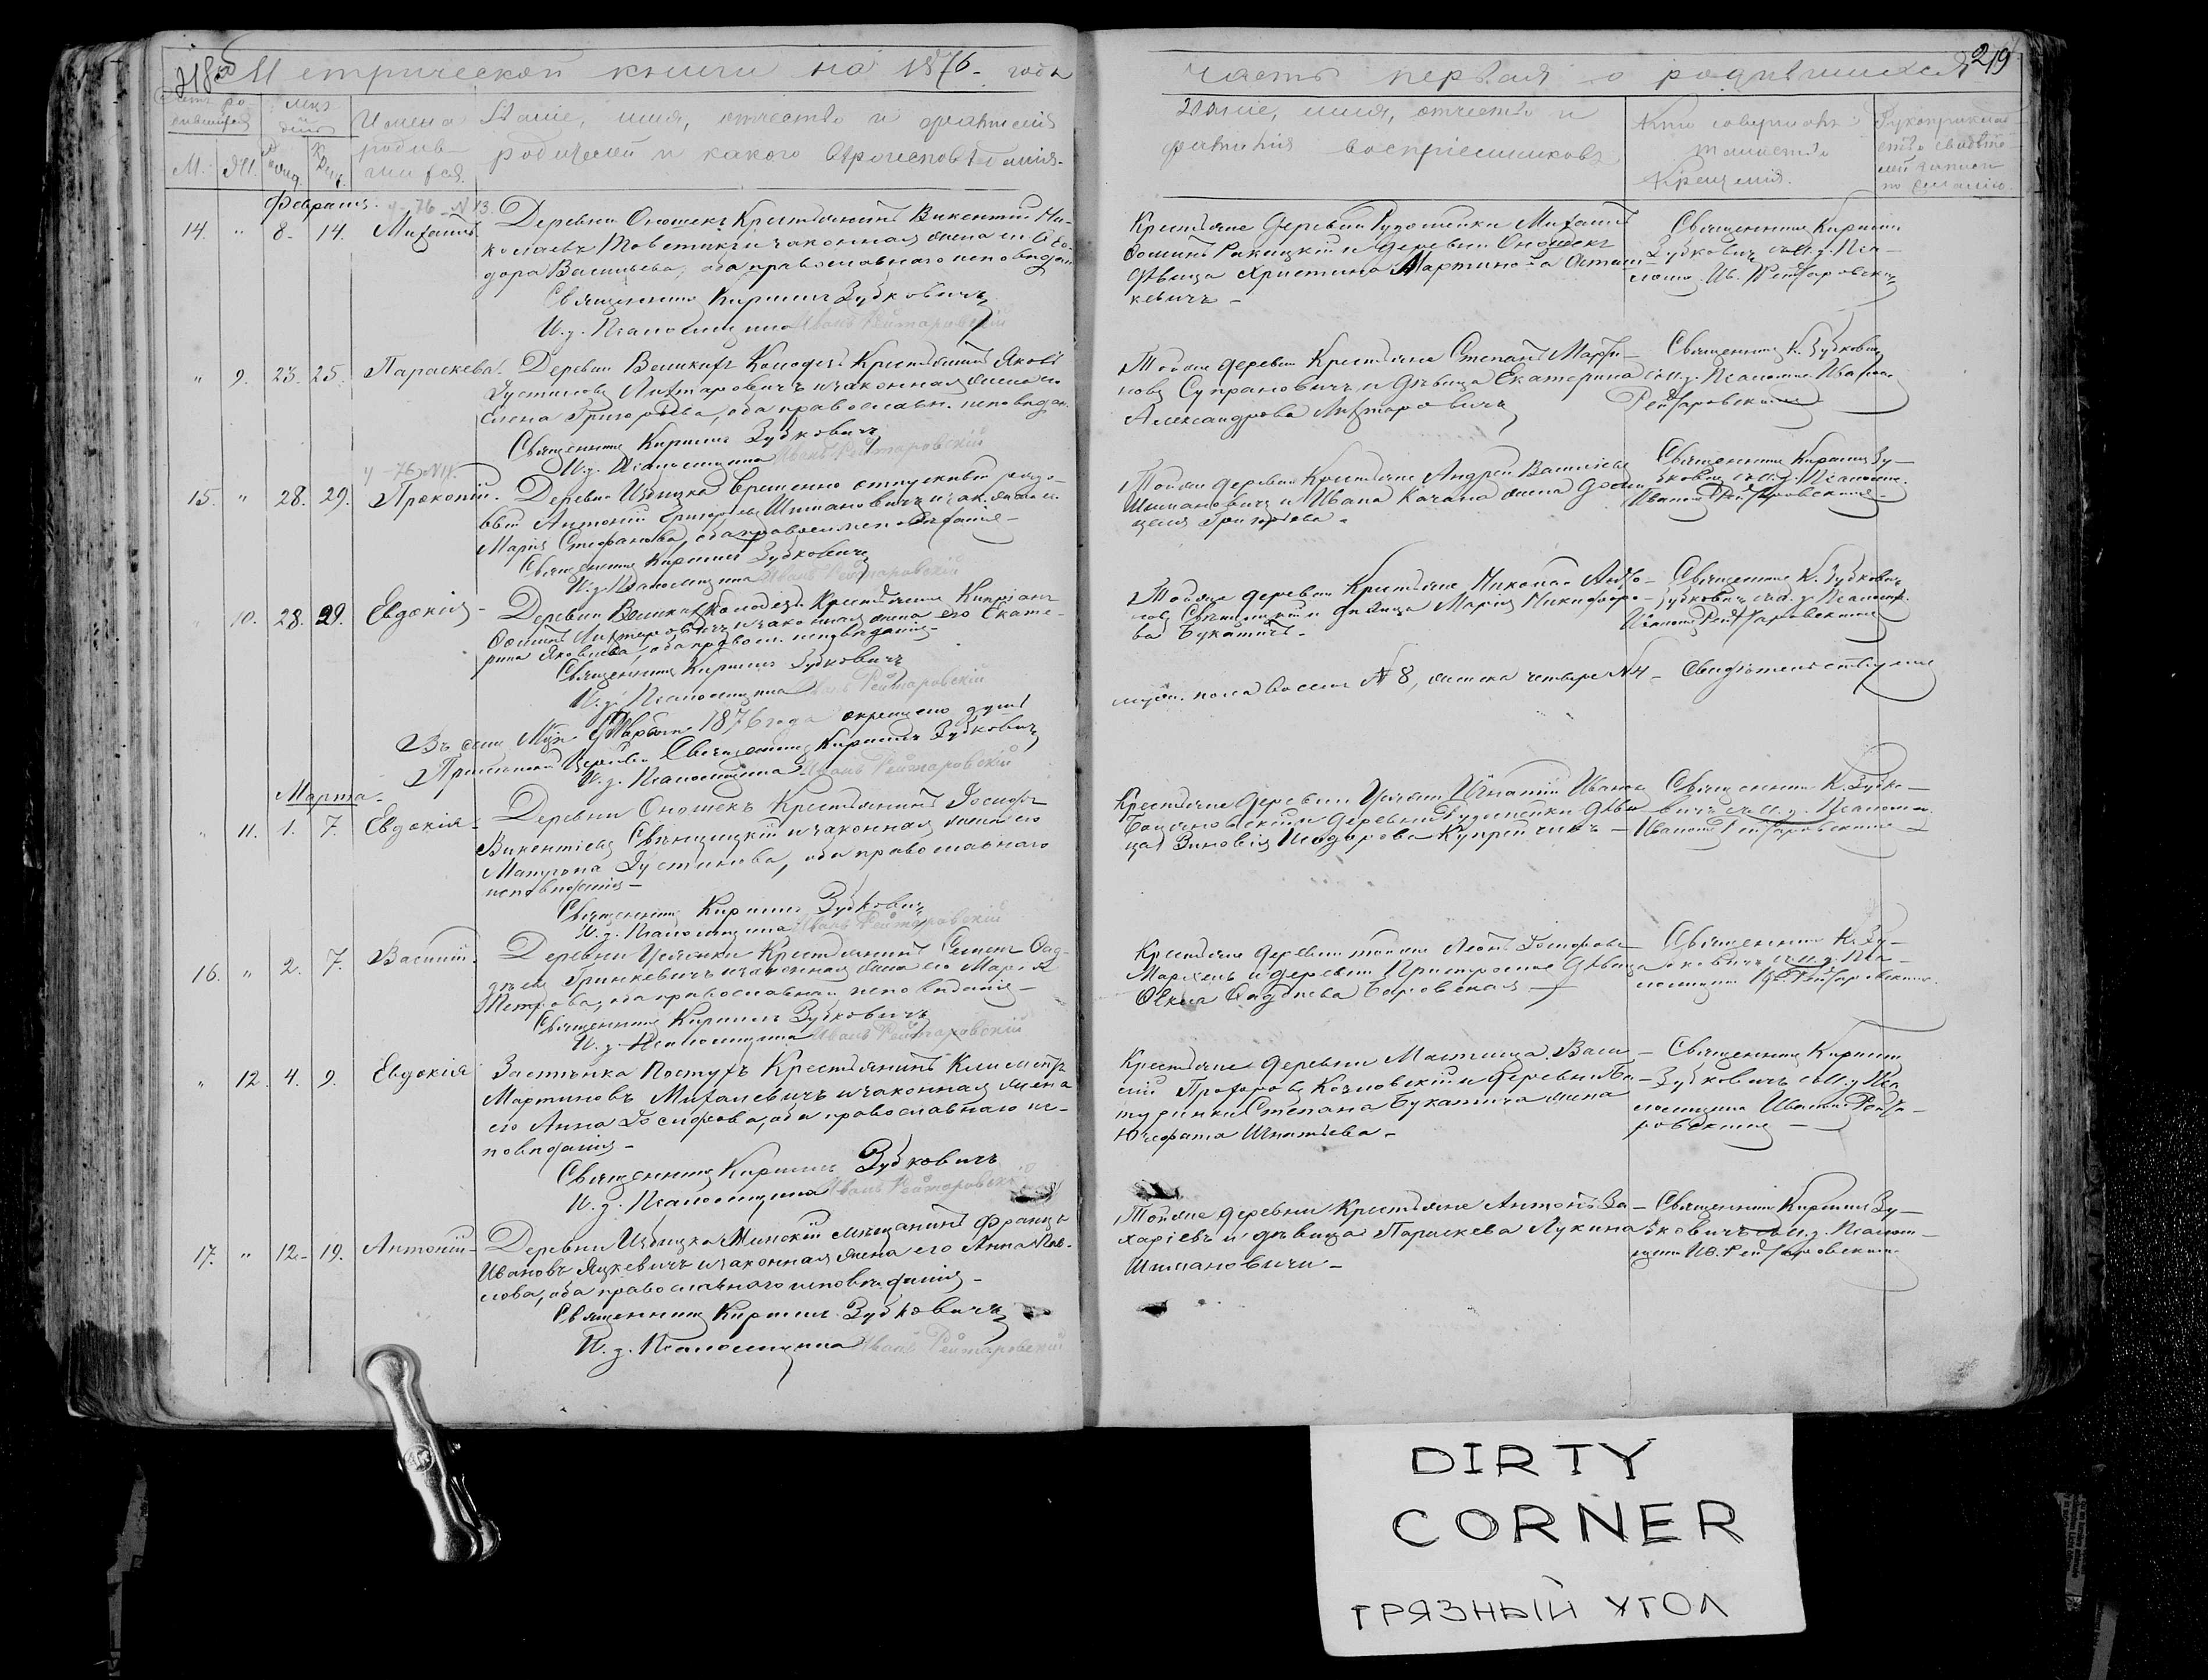 218 об Метрической книги на 1876 года
Счетъ ро-
дившихся
Мцъ
дни
М.
Ж.
Рожд.
Крещ.
Имена
родив-
шихся.
Званіе, имя, отчество и фамилія
родителей и какого вѣроисповѣданія.
Февраля.
14. " 8. 14. Михаилъ
Деревни Оношекъ Крестьянинъ Викентій Ни-
колаевъ и законная жена его Ѳео-
дора Васильева, оба православнаго исповѣдан.
Священникъ Кириллъ Зубковичъ
И. д. Псаломщика Иванъ Рейтаровскій
" 9. 23. 25. Параскева.
Деревни Великихъ Колодезь Крестьянинъ Яковъ
Іустиновъ Лихтаровичъ и законная жена его
Елена Григорьева, оба православн. исповѣдан.
Священникъ Кириллъ Зубковичъ
И. д. Псаломщика Иванъ Рейтаровскій
15. " 28. 29. Прокопій.
Деревни Избицка временно отпускной рядо-
вый Антоній Григорьевъ Шимановичъ и зак. жена его
Марія Стефанова, оба правосл. исповѣданія
Священникъ Кириллъ Зубковичъ
И. д. Псаломщика Иванъ Рейтаровскій
" 10. 28. 29. Евдокія
Деревни Великихъ Колодезь Крестьянинъ Кипріанъ
Ѳоминъ Лихтаровичъ и законная жена его Екате-
рина Яковлева, оба правосл. исповѣданія
Священникъ Кириллъ Зубковичъ
И. д. Псаломщика Иванъ Рейтаровскій
Въ семъ Мцѣ Февралѣ 1876 года окрещено душъ
Церкви Священникъ Кириллъ Зубковичъ
И. д. Псаломщика Иванъ Рейтаровскій
Марта.
" 11. 1. 7. Евдокія
Деревни Оношекъ Крестьянинъ Іосифъ
Викентіевъ Свѣнцицкій и законная жена его
Матрона Іустинова, оба православнаго
исповѣданія
Священникъ Кириллъ Зубковичъ
И. д. Псаломщика Иванъ Рейтаровскій
16. " 2. 7. Василій.
Деревни Крестьянинъ Семенъ Ѳад-
дѣевъ Гринкевичъ и законная жена его Марія
Петрова, оба православнаго исповѣданія
Священникъ Кириллъ Зубковичъ
И. д. Псаломщика Иванъ Рейтаровскій
" 12. 4. 9. Евдокія
Застѣнка Постухъ Крестьянинъ Климентъ
Мартиновъ Михалевичъ и законная жена
его Анна Іосифова, оба православнаго ис-
повѣданія
Священникъ Кириллъ Зубковичъ
И. д. Псаломщика Иванъ Рейтаровскій
17. " 12. 19. Антоній
Деревни Избицка Минскій мѣщанинъ Францъ
Ивановъ Яцкевичъ и законная жена его Анна Пав-
лова, оба православнаго исповѣданія
Священникъ Кириллъ Зубковичъ
И. д. Псаломщика Иванъ Рейтаровскій
часть первая о родившихся
219
Званіе, имя, отчество и
фамилія воспріемниковъ
Кто совершалъ
таинство
Крещенія.
Рукоприклад-
ство свидѣте-
лей записи
по желанію.
Крестьяне деревни Рудотейки Михаилъ
Ѳоминъ Ракицкій и деревни Оношекъ
дѣвица Христина Мартинова Осташ-
кевичъ
Священникъ Кириллъ
Зубковичъ съ и. д. Пса-
ломщ. Ив. Рейтаровскимъ
Тойже деревни Крестьяне Степанъ Марти-
новъ Супрановичъ и дѣвица Екатерина
Александрова Лихтаровичъ
Священникъ К. Зубкович
съ и. д. Псаломщ. Иваномъ
Рейтаровскимъ
Тойже деревни Крестьяне Андрей Васильевъ
Шимановичъ и Ивана Качана жена
Григорьева.
Священникъ Кириллъ Зу-
бковичъ съ и. д. Псаломщ.
Иваномъ Рейтаровскимъ
Тойже деревни Крестьяне Николай
Свѣнцицкій и дѣвица Марія Никифоро-
ва Букатичъ
Священникъ К. Зубкович
съ и. д. Псаломщ.
Иваномъ Рейтаровскимъ
муж. пола восемь № 8, женска четыре № 4 Свидѣтельствуемъ
Крестьяне деревни Игнатій Ивановъ
и деревни Рудотейки дѣви-
ца Зиновія Исидорова Купрейчикъ
Священникъ К. Зубко-
вичъ съ и. д. Псаломщ.
Иваномъ Рейтаровскимъ
Крестьяне деревни тойже Леонъ Іосифовъ
и деревни дѣвица
Ѳекла Ѳаддѣева Боровская
Священникъ К. Зу-
бковичъ съ и. д. Пса-
ломщик. Ив. Рейтаровскимъ.
Крестьяне деревни Мостища Васи-
лій Прохоровъ Козловскій и деревни Ба-
туринки Степана Букатича жена
Юзефата Игнатьева
Священникъ Кириллъ
Зубковичъ съ и. д. Пса-
ломщика Иваномъ Рейта-
ровскимъ
Тойже деревни Крестьяне Антонъ За-
харіевъ и дѣвица Параскева Лукина
Шимановичи
Священникъ Кириллъ Зу-
бковичъ съ и. д. Псалом-
щика Ив. Рейтаровскимъ
DIRTY
CORNER
ГРЯЗНЫЙ УГОЛ